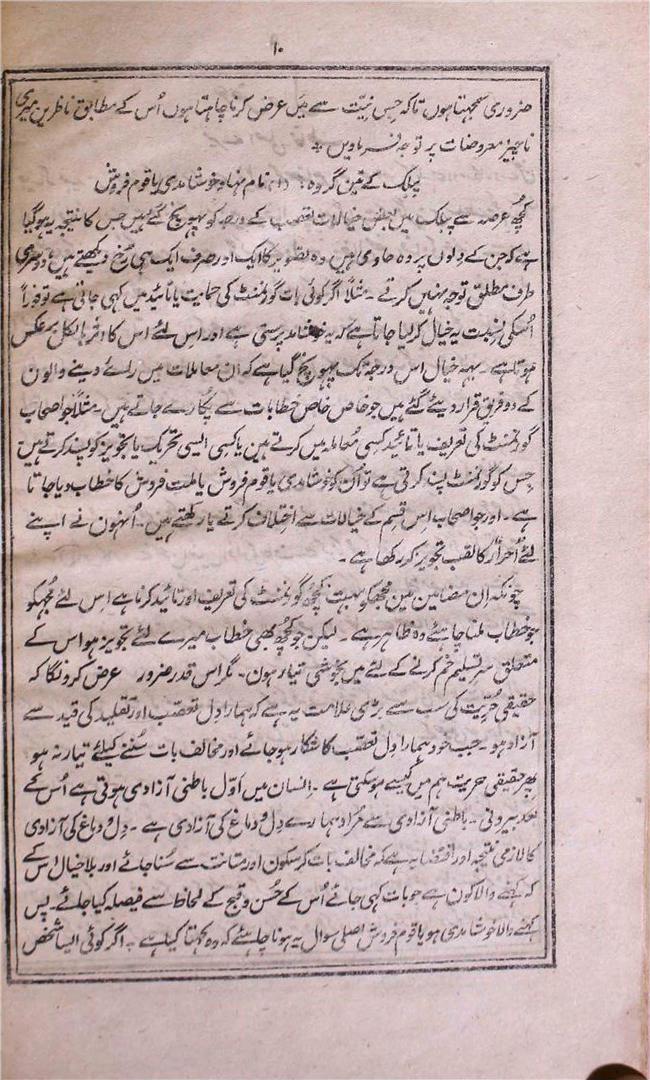 ۱۰
ضروری سمجھتا ہوں تاکہ جس نیت سے میں عرض کرنا چاہتا ہوں اُس کے مطابق ناظرین میری
ناچیز معروضات پر توجہ فرماویں ؞
پبلک کے تین گروہ :
کچھ عرصہ سے پبلک میں بعض خیالات تعصب کے درجہ کو پہونچ گئے ہیں جس کا نتیجہ یہ ہوگیا
ہے کہ جن کے دلوں پر وہ حاوی ہیں وہ تصویر کا ایک اور صرف ایک ہی رُخ دیکھتے ہیں دوسری
طرف مطلق توجہ نہیں کرتے ۔ مثلاً اگر کوئی بات گورنمنٹ کی حمایت یا تائید میں کہی جاتی ہے تو فوراً
اُسکی نسبت یہ خیال کرلیا جاتا ہے کہ یہ خوشامد پرستی ہے اور اس لئے اس کا اثر بالکل برعکس
ہوتا ہے ۔ یہہ خیال اس درجہ تک پہونچ گیا ہے کہ ان معاملات میں رائے دینے والون
کے دو فریق قرار دیئے گئے ہیں جو خاص خاص خطابات سے پکارے جاتے ہیں ۔ مثلاً جو اصحاب
گورنمنٹ کی تعریف یا تائید کسی معاملہ میں کرتے ہین یا کسی ایسی تحریک یا تجویز کو پسند کرتے ہیں
جس کو گورنمنٹ پسند کرتی ہے تو اُن کو خوشامدی یا قوم فروش یا ملت فروش کا خطاب دیا جاتا
ہے ۔ اور جو اصحاب اس قسم کے خیالات سے اختلاف کرتے یا رکھتے ہیں ۔ اُنہون نے اپنے
لئے اَحرار کا لقب تجویز کر رکھا ہے ۔
چونکہ اِن مضامین مین مجھکو بہت کچھ گورنمنٹ کی تعریف اور تائید کرنا ہے اس لئے مجہکو
جو خطاب ملنا چاہئے وہ ظاہر ہے ۔ لیکن جو کچھ بھی خطاب میرے لئے تجویز ہو اس کے
متعلق سر تسلیم خم کرنے کے لئے میں بخوشی تیار ہون ۔ مگر اس قدر ضرور عرض کرونگا کہ
حقیقی حُریّت کی سب سے بڑی علامت یہ ہے کہ ہمارا دِل تعصّب اور تقلید کی قید سے
آزاد ہو ۔ جب خود ہمارا دل تعصّب کا شکار ہو جائے اور مخالف بات سُننے کیلئے تیار نہ ہو
پھر حقیقی حریت ہم میں کیسے ہوسکتی ہے ۔ اِنسان میں اوّل باطنی آزادی ہوتی ہے اُس کے
بعد بیرونی ۔ باطنی آزادی سے مُراد ہمارے دِل و دماغ کی آزادی ہے ۔ دِل و دماغ کی آزادی
کا لازمی نتیجہ اور اقتضا یہ ہے کہ مخالف بات کو سکون اور متانت سے سُنا جائے اور بلا خیال اس کے
کہ کہنے والا کون ہے جو بات کہی جائے اُس کے حُسن و قبح کے لحاظ سے فیصلہ کیا جائے ۔ پس
کہنے والا خوشامدی ہو یا قوم فروش اصلی سوال یہ ہونا چاہیئے کہ وہ کہتا کیا ہے ۔ اگر کوئی ایسا شخص